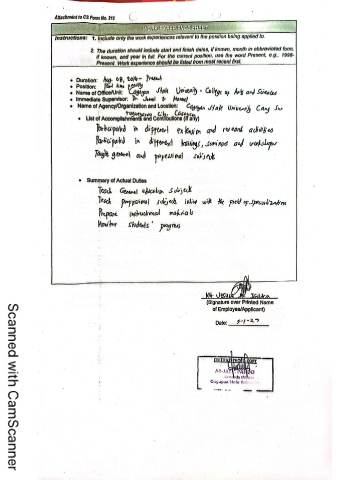 Attachment to CS Form No. 212
WORK EXPERIENCE SHEET
Instructions: 1. Include only the work experiences relevant to the position being applied to.
2. The duration should include start and finish dates, if known, month in abbreviated form, if known, and year in full. For the current position, use the word Present, e.g., 1998-Present. Work experience should be listed from most recent first.
• Duration: Aug. 08, - Present
• Position: Part time
• Name of Office/Unit: Cagayan State University - College of Arts and Sciences
• Immediate Supervisor: Dr.
• Name of Agency/Organization and Location: Cagayan State University
City, Cagayan
• List of Accomplishments and Contributions (if any)
Participated in different extension and research activities
Participated in different trainings, seminars and workshops
general and professional subjects
• Summary of Actual Duties
Teach General education subjects
Teach professional subjects inline with the field of specialization
Prepare instructional materials
Monitor students' progress
(Signature over Printed Name
of Employee/Applicant)
Date:
Scanned with CamScanner